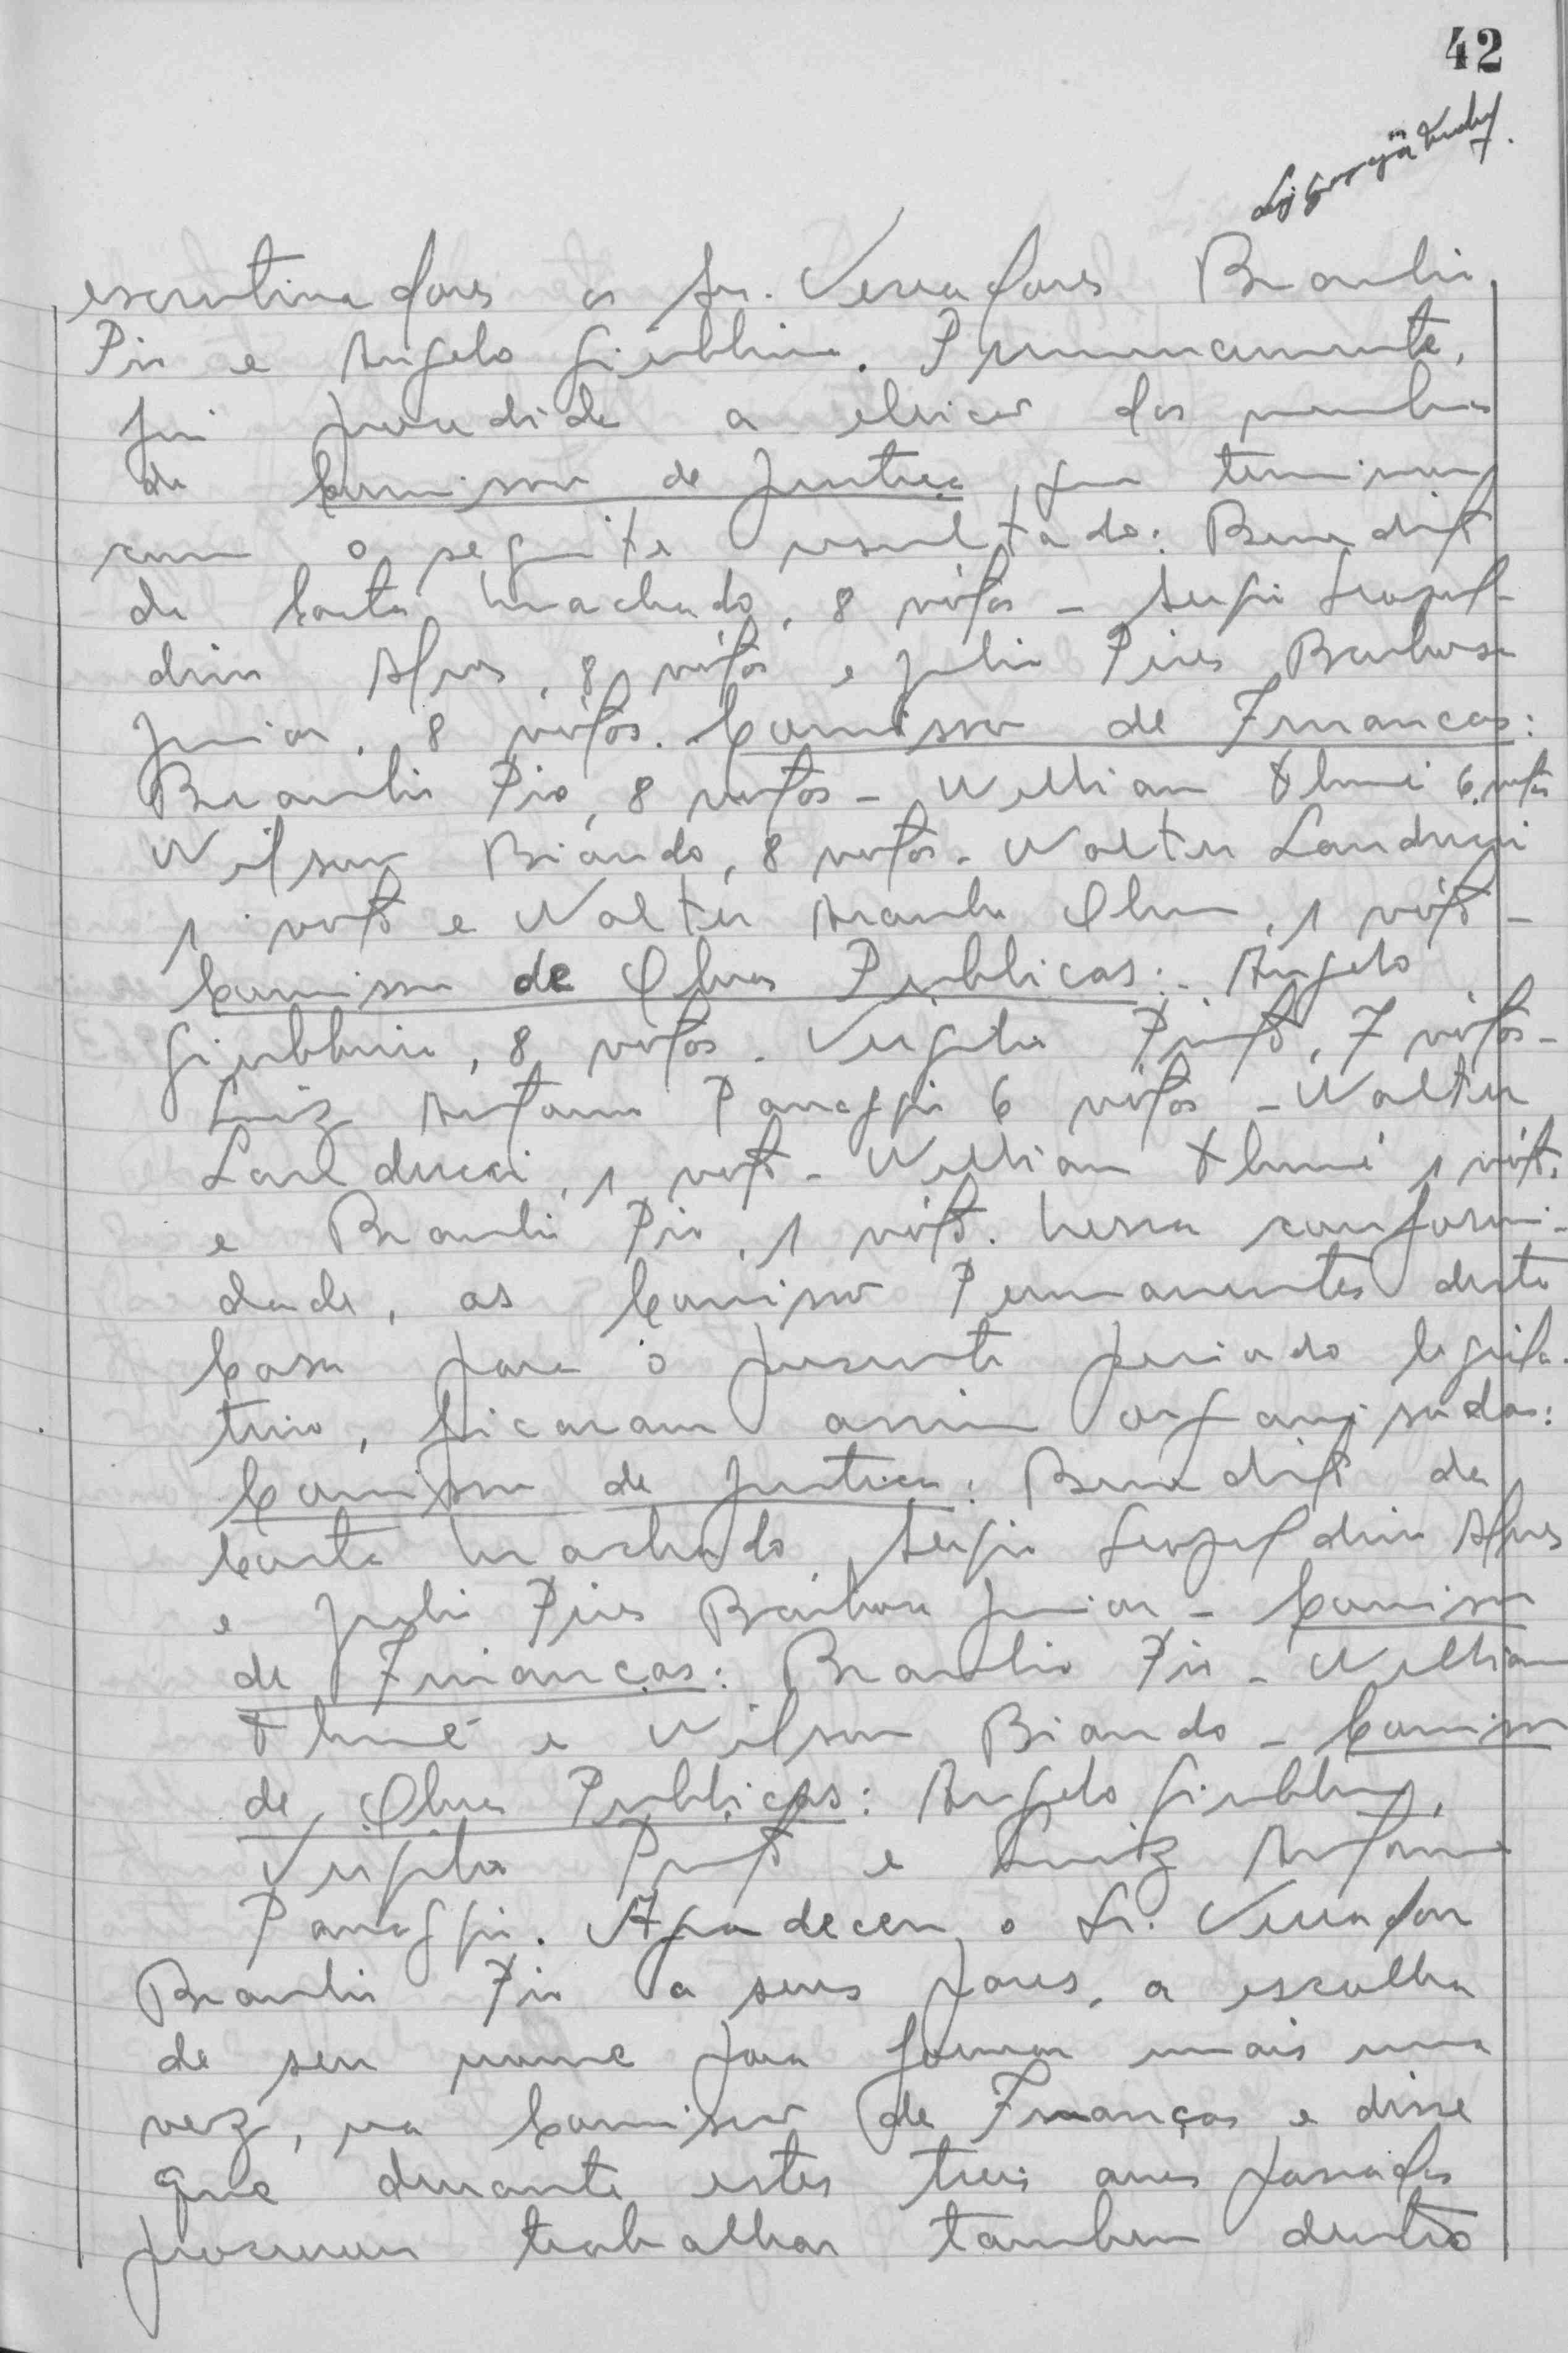 42
escrutinadores os Srs. Vereadores Braulio
Pio e Angelo Giubbina. Primeiramente,
foi procedida a eleição dos membros
da Comissão de Justiça, que terminou
com o seguinte resultado: Benedito
da Costa Machado, 8 vótos - Sergio Leopol-
dino Alves, 8 vótos e Julio Pires Barbosa
Junior, 8 vótos. Comissão de Finanças:
Braulio Pio, 8 votos - William 6 votos
Wilson Biando, 8 votos - Walter Landucci
1 voto e Walter 1 vóto -
Comissão de Obras Publicas: - Angelo
Giubbina, 8 votos - Virgilio Pinto, 7 vótos -
Luiz Antonio 6 vótos - Walter
Landucci, 1 voto - William 1 vóto,
e Braulio Pio, 1 vóto. Nessa conformi-
dade, as Comissões Permanentes desta
Casa para o presente periodo legisla-
tivo, ficaram assim organisadas:
Comissão de Justiça: Benedito da
Costa Machado, Sergio Leopoldino Alves
e Julio Pires Barbosa Junior - Comissão
de Finanças: Braulio Pio - William
e Wilson Biando - Comissão
de Obras Publicas: Angelo Giubbina,
Virgilio Pinto e Luiz Antonio
Agradeceu o Sr. Vereador
Braulio Pio a seus pares, a escolha
de seu nome para formar mais uma
vez, na Comissão de Finanças e disse
que durante estes treis anos passados
procurou trabalhar tambem dentro